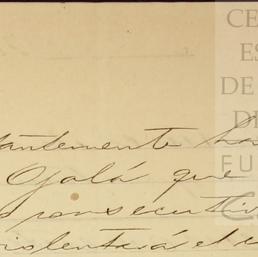 CE
ES
DE
DE
FU
C
antemente ha
Ojalá que
consecutiv
violentará el